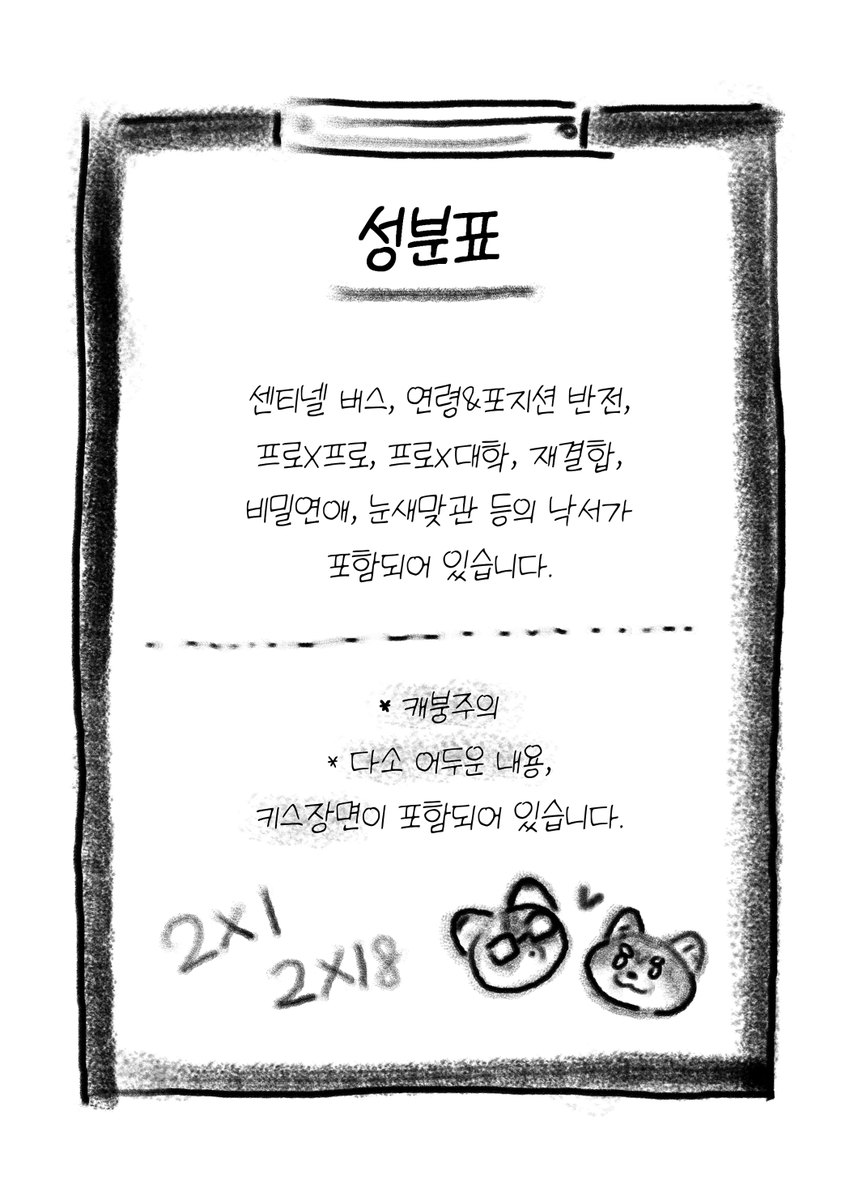 성분표
센티넬 버스, 연령&포지션 반전,
프로X프로, 프로X대학, 재결합,
비밀연애, 눈새맞관 등의 낙서가
포함되어 있습니다.
* 캐붕주의
* 다소 어두운 내용,
키스장면이 포함되어 있습니다.
2X1
2X18